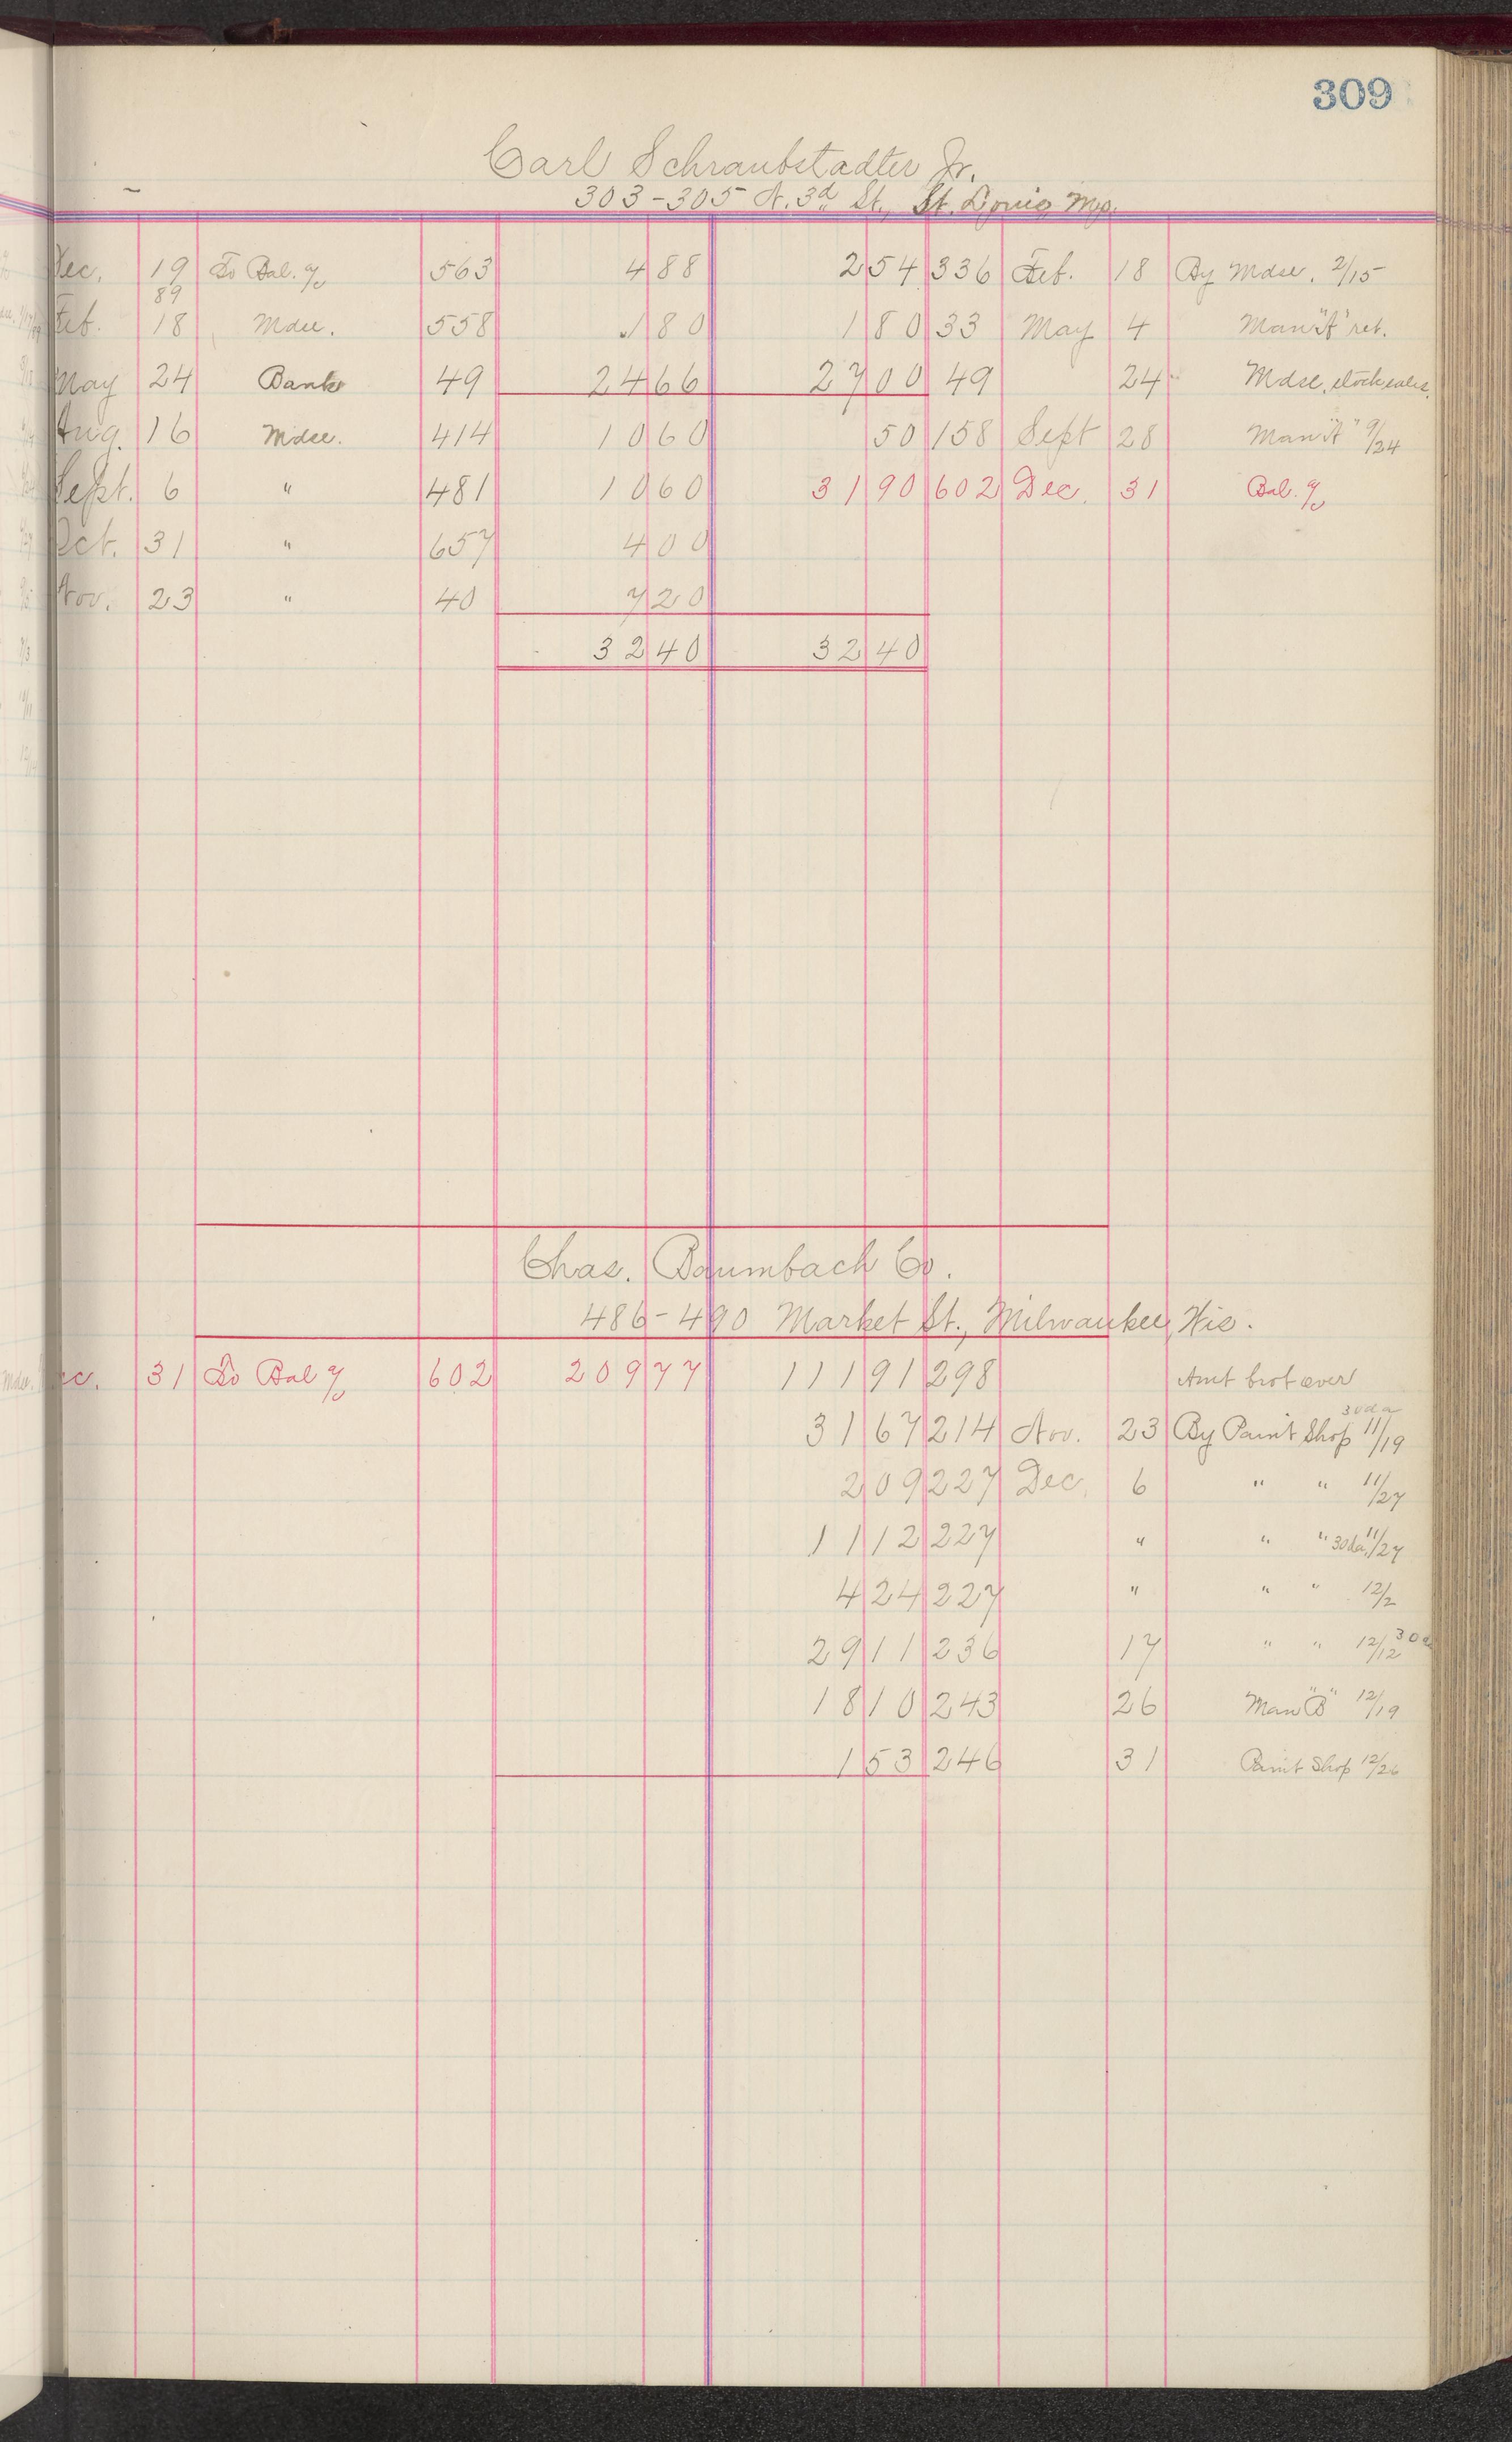 309
Carl Schraubstadter Jr.
303-305 N. 3d St., St. Louis Mo.
Dec. 19 To Bal. a/c 563 4 88 2 54 336 Feb. 18 By Mdse. 2/15
89
Feb. 18 Mdse. 558 1 80 1 80 33 May 4 Man "A" ret.
May 24 Bank 49 24 66 27 00 49 24 Mdse. stock sales.
Aug. 16 Mdse. 414 10 60 50 158 Sept 28 Man "A" 9/24
Sept. 6 " 481 10 60 31 90 602 Dec. 31 Bal. a/c
Oct. 31 " 657 4 00
Nov. 23 " 40 7 20
32 40 32 40
Chas. Baumbach Co.
486-490 Market St., Milwaukee, Wis.
ec. 31 To Bal a/c 602 209 77 111 91 298 Amt brot over
30 da
31 67 214 Nov. 23 By Paint Shop 11/19
2 09 227 Dec. 6 " " 11/27
11 12 227 " " " 30 da. 11/27
4 24 227 " " " 12/2
29 11 236 17 " " 12/12 30 da
18 10 243 26 Man "B" 12/19
1 53 246 31 Paint Shop 12/26